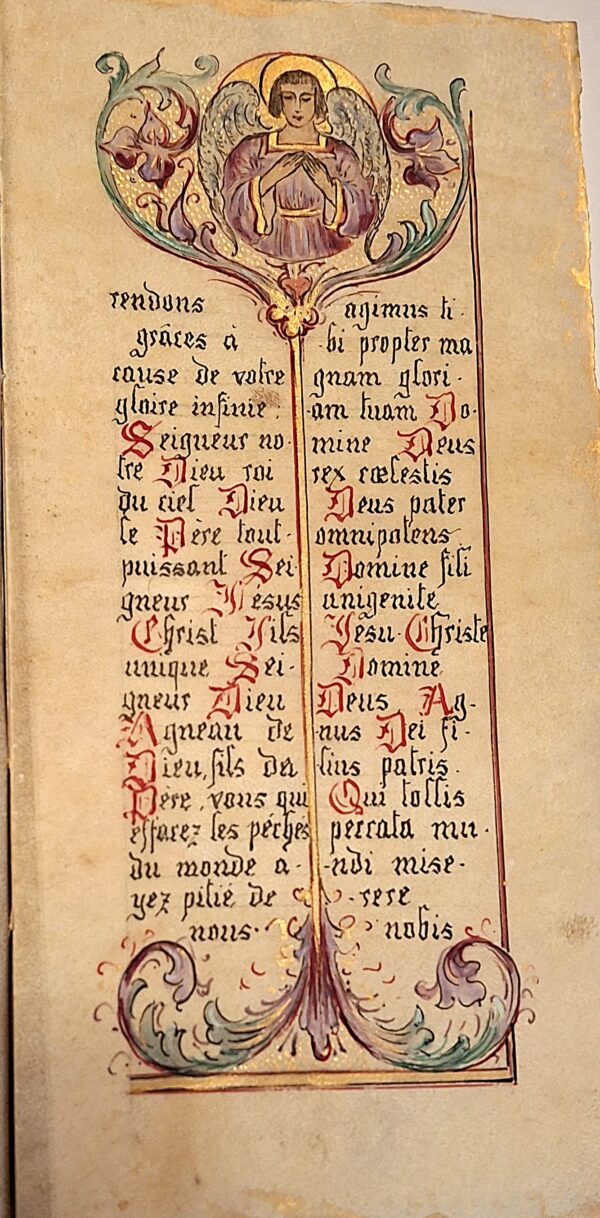 rendons
grâces à
cause de votre
gloire infinie:
Seigneur no-
tre Dieu roi
du ciel Dieu
le Père tout-
puissant Sei
gneur Jésus
Christ Fils
unique Sei-
gneur Dieu
Agneau de
Dieu, fils du
Père, vous qui
effacez les péchés
du monde a-
yez pitié de
nous.
agimus ti-
bi propter ma
gnam glori-
am tuam Do-
mine Deus
rex cœlestis
Deus pater
omnipotens
Domine fili
unigenite
Jesu Christe
Domine
Deus Ag-
nus Dei fi-
lius patris.
Qui tollis
peccata mu-
-ndi mise-
-rere
nobis